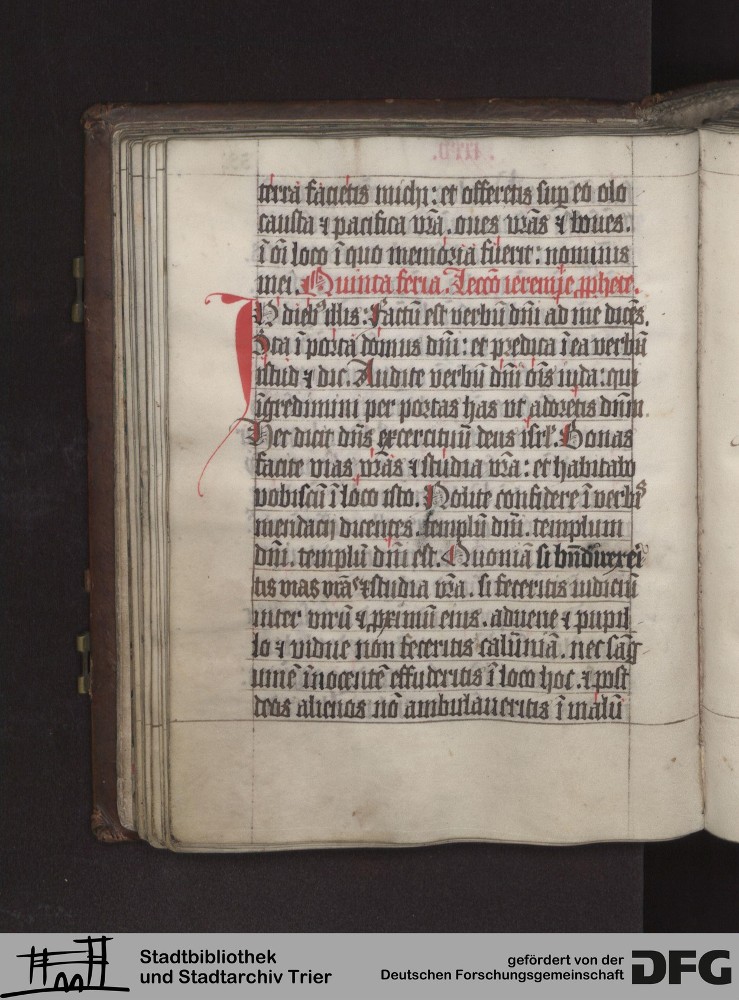 terra facietis michi: et offeretis sup̲ eo olo
causta ⁊ pacifica vr̄a. oues vr̄as ⁊ boues.
ī oī loco ī quo memoria fuerit: nominis
mei. Quinta feria. Leccō ieremie ꝓphete.
IN dieb⁹ illis: Factū est verbū dn̄i ad me dicēs.
Sta ī porta domus dn̄i: et predica ī ea verbū
istud ⁊ dic. Audite verbū dn̄i oīs iuda: qui
īgredimini per portas has vt adoretis dn̄m.
Hec dicit dn̄s exercituū deus isrl. Bonas
facite vias vr̄as ⁊ studia vr̄a: et habitabo
vobiscū ī loco isto. Nolite confidere ī verbis
mendacii dicentes. templū dn̄i. templum
dn̄i. templū dn̄i est. Quoniā si bn̄direxeri
tis vias vr̄as ⁊ studia vr̄a. si feceritis iudiciū
inter virū ⁊ ꝓximū eius. aduene ⁊ pupil
lo ⁊ vidue non feceritis calūniā. nec sāg
uinē īnocentē effuderitis ī loco hoc. ⁊ post
deos alienos nō ambulaueritis ī malū
Stadtbibliothek
und Stadtarchiv Trier
gefördert von der
Deutschen Forschungsgemeinschaft
DFG